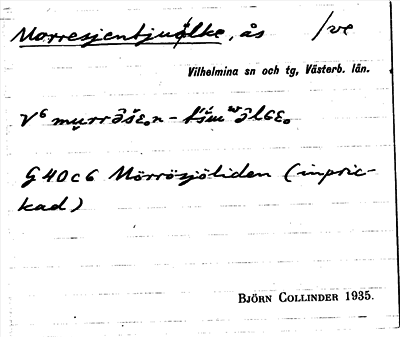 Morresjentjuolke, ås /ve
Vilhelmina sn och tg, Västerb. län.
V⁶
G 40 c 6 Mörrösjöliden (inpric-
kad)
BJÖRN COLLINDER 1935.